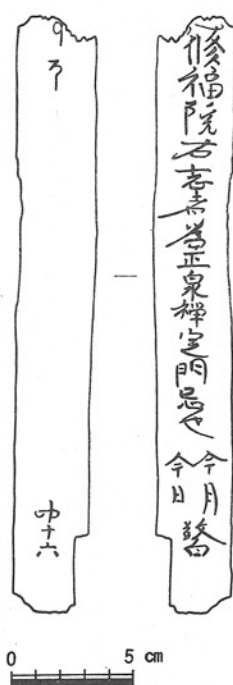 修福院右志者為正泉禅定門忌也
今月
今日
敬白
中十六
0 5 cm